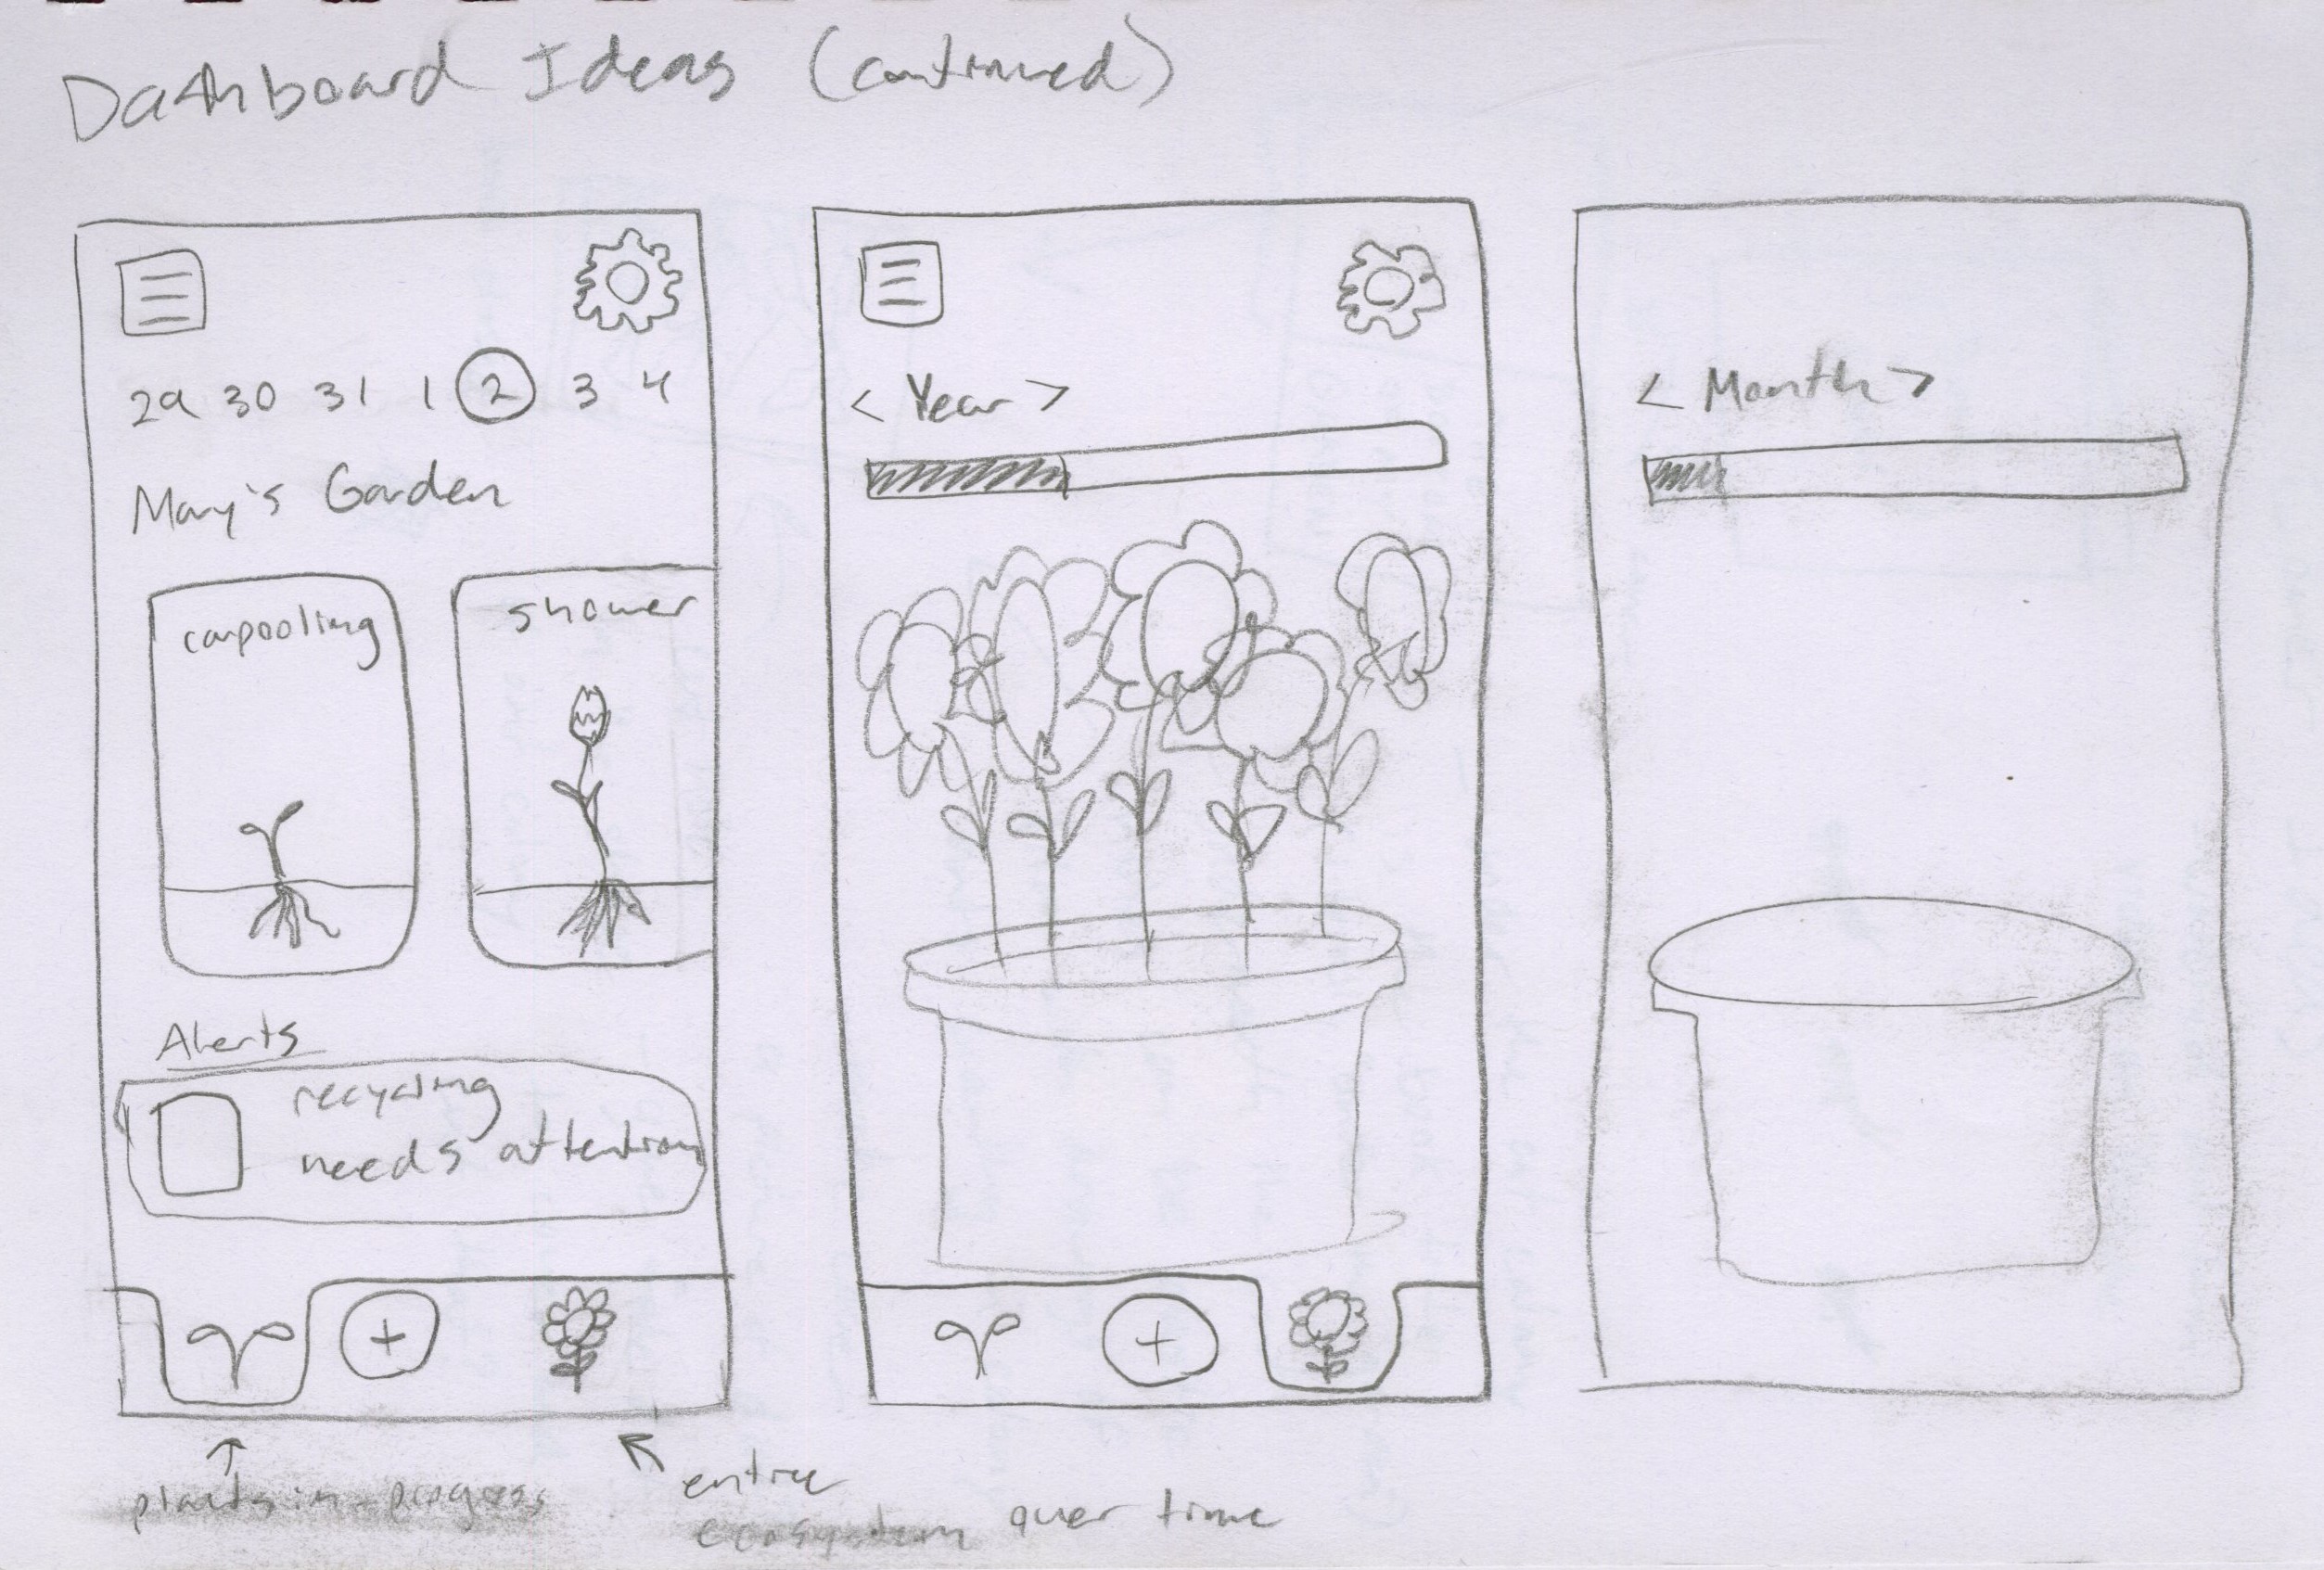 Dashboard Ideas (continued)
29 30 31 1 2 3 4
Mary's Garden
carpooling
shower
Alerts
recycling
needs attention
+
< Year >
+
< Month >
plants in-progress
entire
ecosystem over time